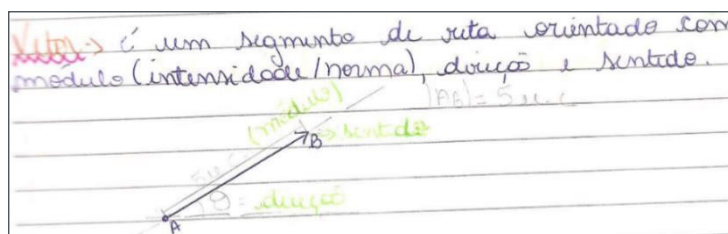 Vetor → é um segmento de reta orientado com
módulo (intensidade/norma), direção e sentido.
|AB| = 5 u.c
5 u.c (módulo)
B → sentido
θ = direção
A